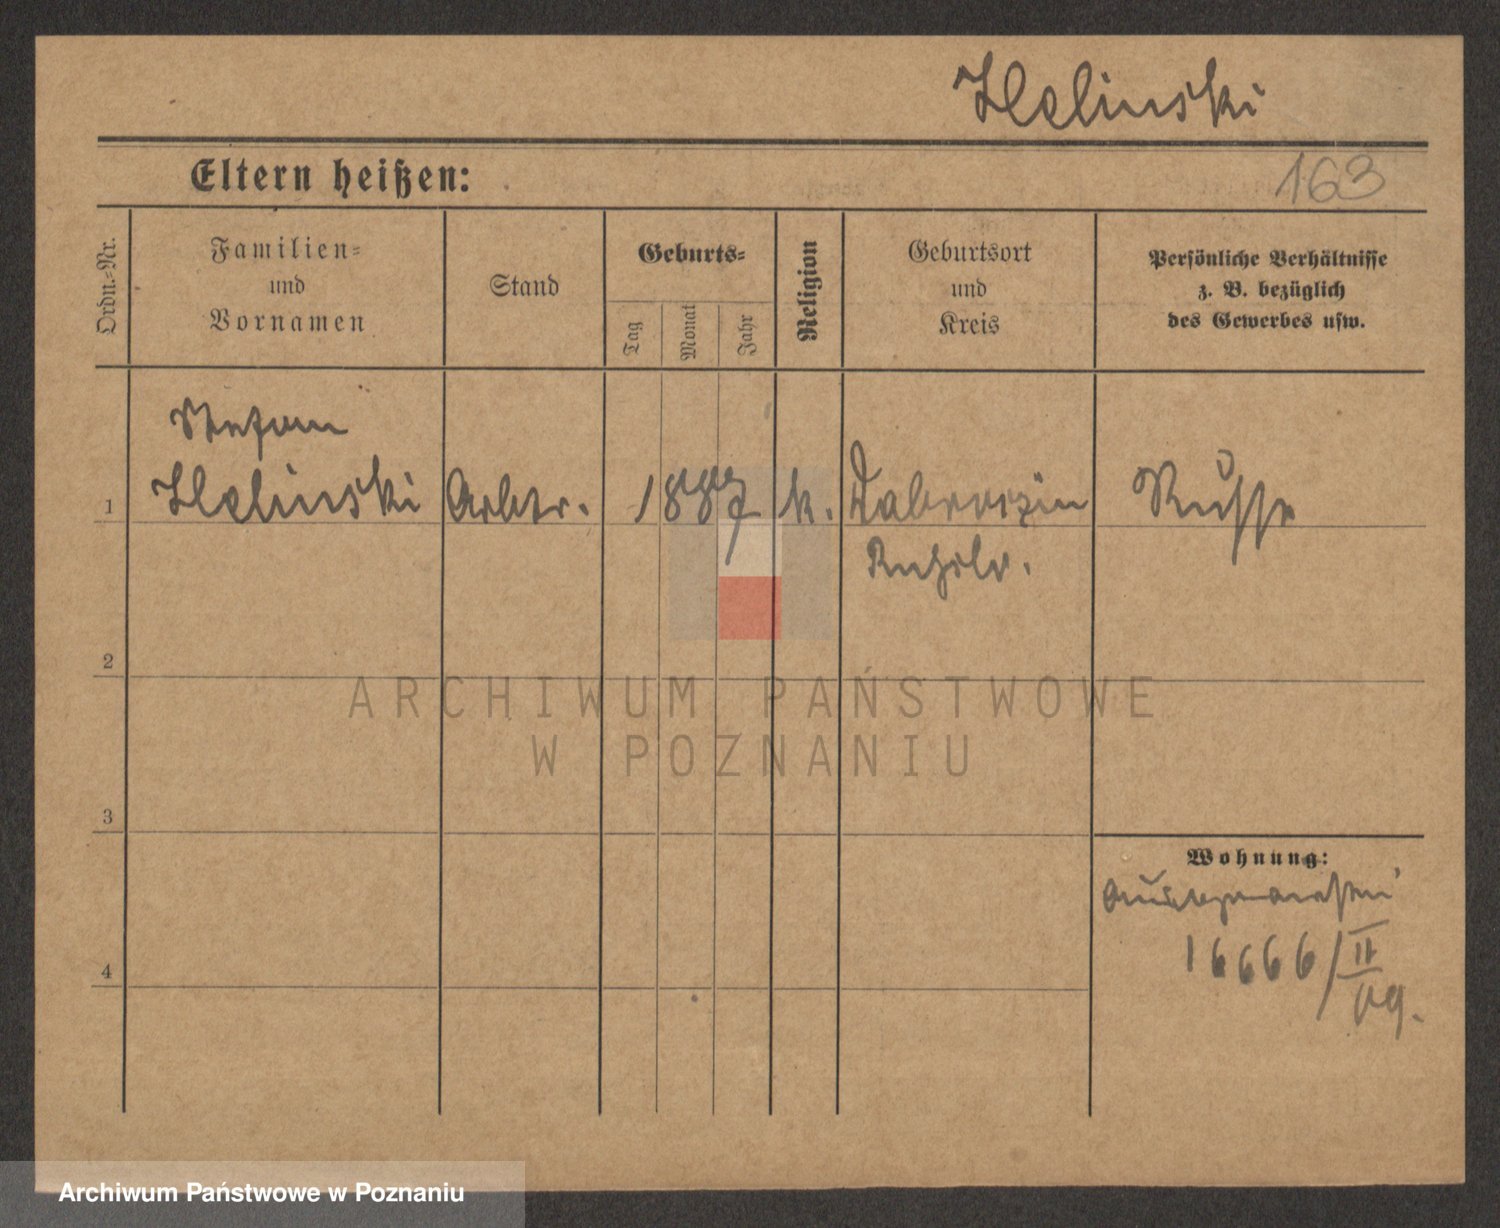 Zelinski
163
Eltern heißen:
Ordn.-Nr.
Familien-
und
Vornamen
Stand
Geburts-
Tag
Monat
Jahr
Religion
Geburtsort
und
Kreis
Persönliche Verhältnisse
z. B. bezüglich
des Gewerbes usw.
Stefan
1 Zelinski Arbtr. 1887 k. Russe
Rußld.
2
3
4
Wohnung:
ausgewiesen
16666/II
09.
ARCHIWUM PAŃSTWOWE
W POZNANIU
Archiwum Państwowe w Poznaniu